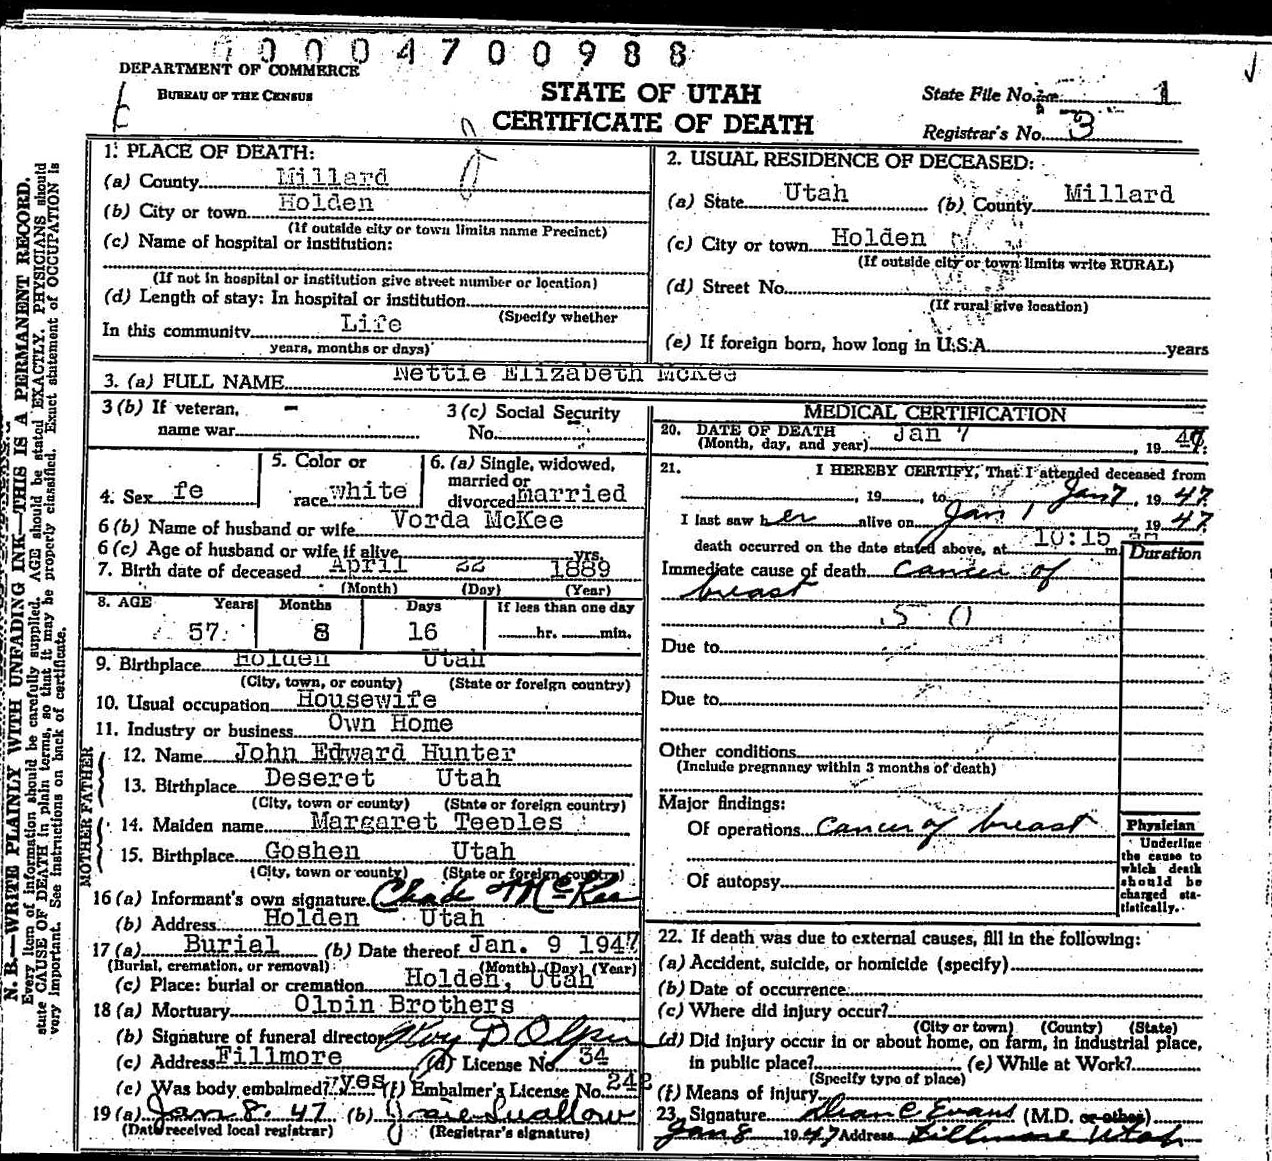 00004700988
DEPARTMENT OF COMMERCE
BUREAU OF THE CENSUS
STATE OF UTAH
CERTIFICATE OF DEATH
State File No. 1
Registrar's No. 3
N. B.—WRITE PLAINLY WITH UNFADING INK—THIS IS A PERMANENT RECORD.
Every item of information should be carefully supplied. AGE should be stated EXACTLY. PHYSICIANS should
state CAUSE OF DEATH in plain terms, so that it may be properly classified. Exact statement of OCCUPATION is
very important. See instructions on back of certificate.
1. PLACE OF DEATH:
(a) County Millard
(b) City or town Holden
(If outside city or town limits name Precinct)
(c) Name of hospital or institution:
(If not in hospital or institution give street number or location)
(d) Length of stay: In hospital or institution
(Specify whether
In this community Life
years, months or days)
2. USUAL RESIDENCE OF DECEASED:
(a) State Utah (b) County Millard
(c) City or town Holden
(If outside city or town limits write RURAL)
(d) Street No.
(If rural give location)
(e) If foreign born, how long in U.S.A. years
3. (a) FULL NAME Nettie Elizabeth McKee
3 (b) If veteran, -
name war
3 (c) Social Security
No.
4. Sex fe
5. Color or
race white
6. (a) Single, widowed,
married or
divorced married
6 (b) Name of husband or wife Vorda McKee
6 (c) Age of husband or wife if alive yrs.
7. Birth date of deceased April 22 1889
(Month) (Day) (Year)
8. AGE Years Months Days If less than one day
57 8 16 hr. min.
9. Birthplace Holden Utah
(City, town, or county) (State or foreign country)
10. Usual occupation Housewife
11. Industry or business Own Home
MOTHER FATHER
12. Name John Edward Hunter
13. Birthplace Deseret Utah
(City, town or county) (State or foreign country)
14. Maiden name Margaret Teeples
15. Birthplace Goshen Utah
(City, town or county) (State or foreign country)
16 (a) Informant's own signature Chad McKee
(b) Address Holden Utah
17 (a) Burial (b) Date thereof Jan. 9 1947
(Burial, cremation, or removal) (Month) (Day) (Year)
(c) Place: burial or cremation Holden, Utah
18 (a) Mortuary Olpin Brothers
(b) Signature of funeral director Roy D Olpin
(c) Address Fillmore (d) License No. 34
(e) Was body embalmed? yes (f) Embalmer's License No. 242
19 (a) Jan 8. 47 (b) Swallow
(Date received local registrar) (Registrar's signature)
MEDICAL CERTIFICATION
20. DATE OF DEATH Jan 7 , 19 47.
(Month, day, and year)
21. I HEREBY CERTIFY, That I attended deceased from
, 19 , to Jan 7, 19 47.
I last saw her alive on Jan 1, 19 47
death occurred on the date stated above, at 10:15 m.
Duration
Immediate cause of death cancer of
breast
50
Due to
Due to
Other conditions
(Include pregnancy within 3 months of death)
Major findings:
Of operations cancer of breast
Of autopsy
Physician
Underline
the cause to
which death
should be
charged sta-
tistically.
22. If death was due to external causes, fill in the following:
(a) Accident, suicide, or homicide (specify)
(b) Date of occurrence
(c) Where did injury occur?
(City or town) (County) (State)
(d) Did injury occur in or about home, on farm, in industrial place,
in public place? (e) While at Work?
(Specify type of place)
(f) Means of injury
23. Signature Dean C Evans (M.D. or other)
Jan 8 1947 Address Fillmore Utah